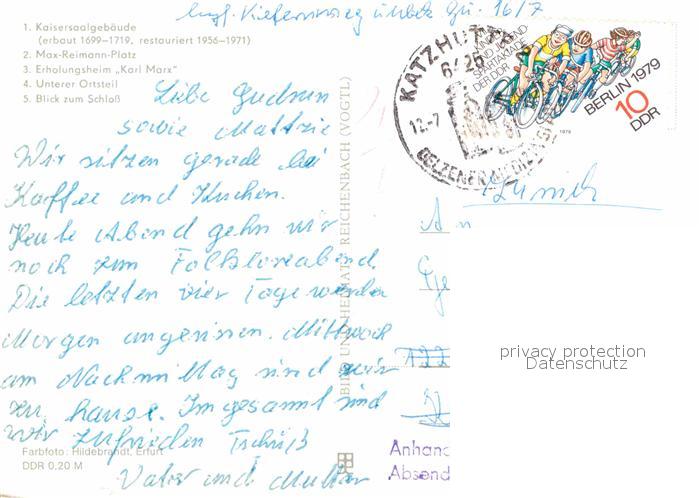 1. Kaisersaalgebäude
(erbaut 1699–1719, restauriert 1956–1971)
2. Max-Reimann-Platz
3. Erholungsheim „Karl Marx"
4. Unterer Ortsteil
5. Blick zum Schloß
16/7
Liebe Gudrun
sowie Mattzie
Wir sitzen gerade bei
Kaffee und Kuchen.
Heute Abend gehn wir
noch zum Folkloreabend.
Die letzten vier Tage werden
Morgen angerissen. Mittwoch
am Nachmittag sind wir
zu hause. Im gesamt sind
wir zufrieden Tschüß
Vater und Mutter
Farbfoto: Hildebrandt, Erfurt
DDR 0,20 M
BILD UND HEIMAT REICHENBACH (VOGTL)
KATZHÜTTE
6426
12.-7
KINDER- UND
JUGEND-
SPARTAKIADE
DER DDR
BERLIN 1979
10
DDR
1979
An
Anhang
Absend
privacy protection
Datenschutz